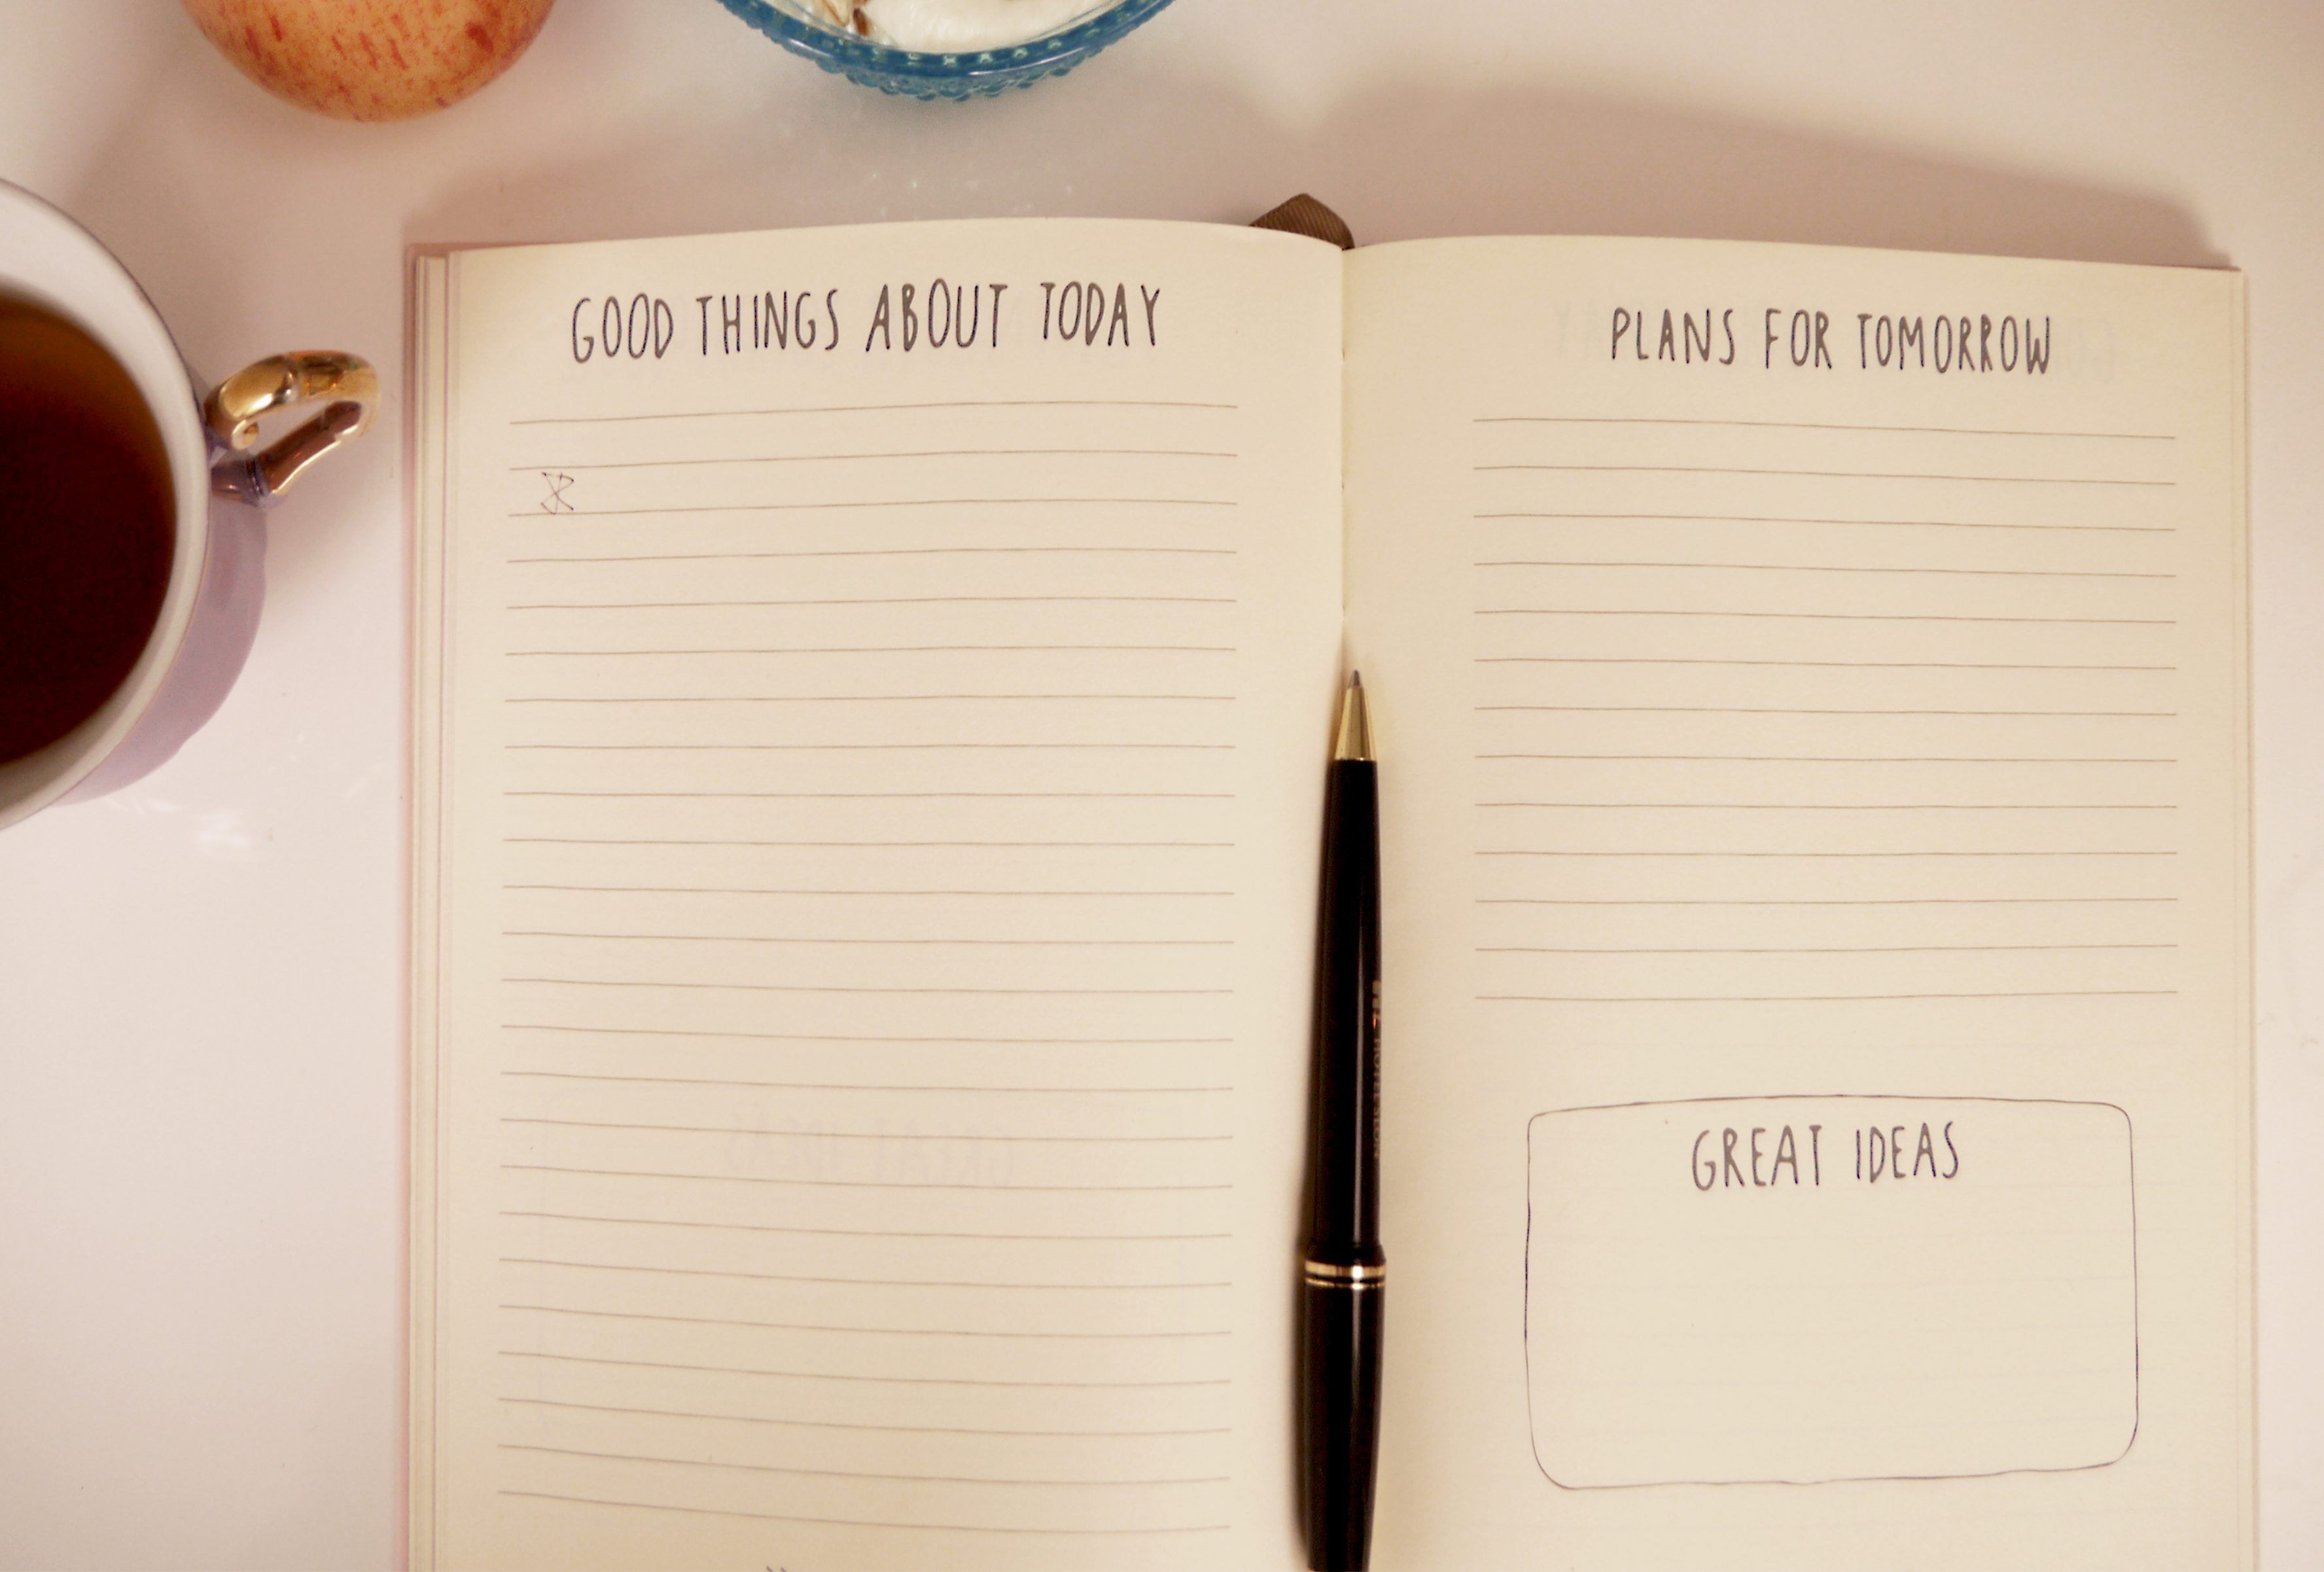 GOOD THINGS ABOUT TODAY
PLANS FOR TOMORROW
GREAT IDEAS